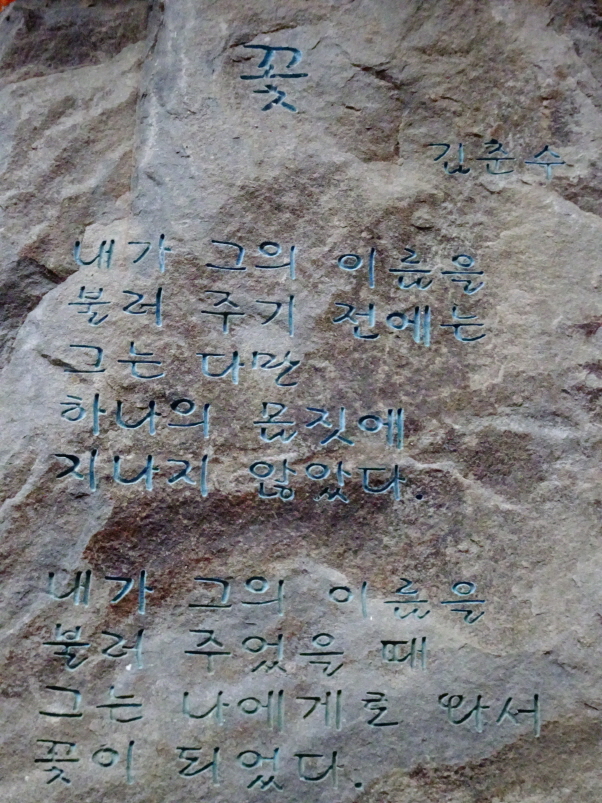 꽃
김춘수
내가 그의 이름을
불러 주기 전에는
그는 다만
하나의 몸짓에
지나지 않았다.
내가 그의 이름을
불러 주었을 때
그는 나에게로 와서
꽃이 되었다.